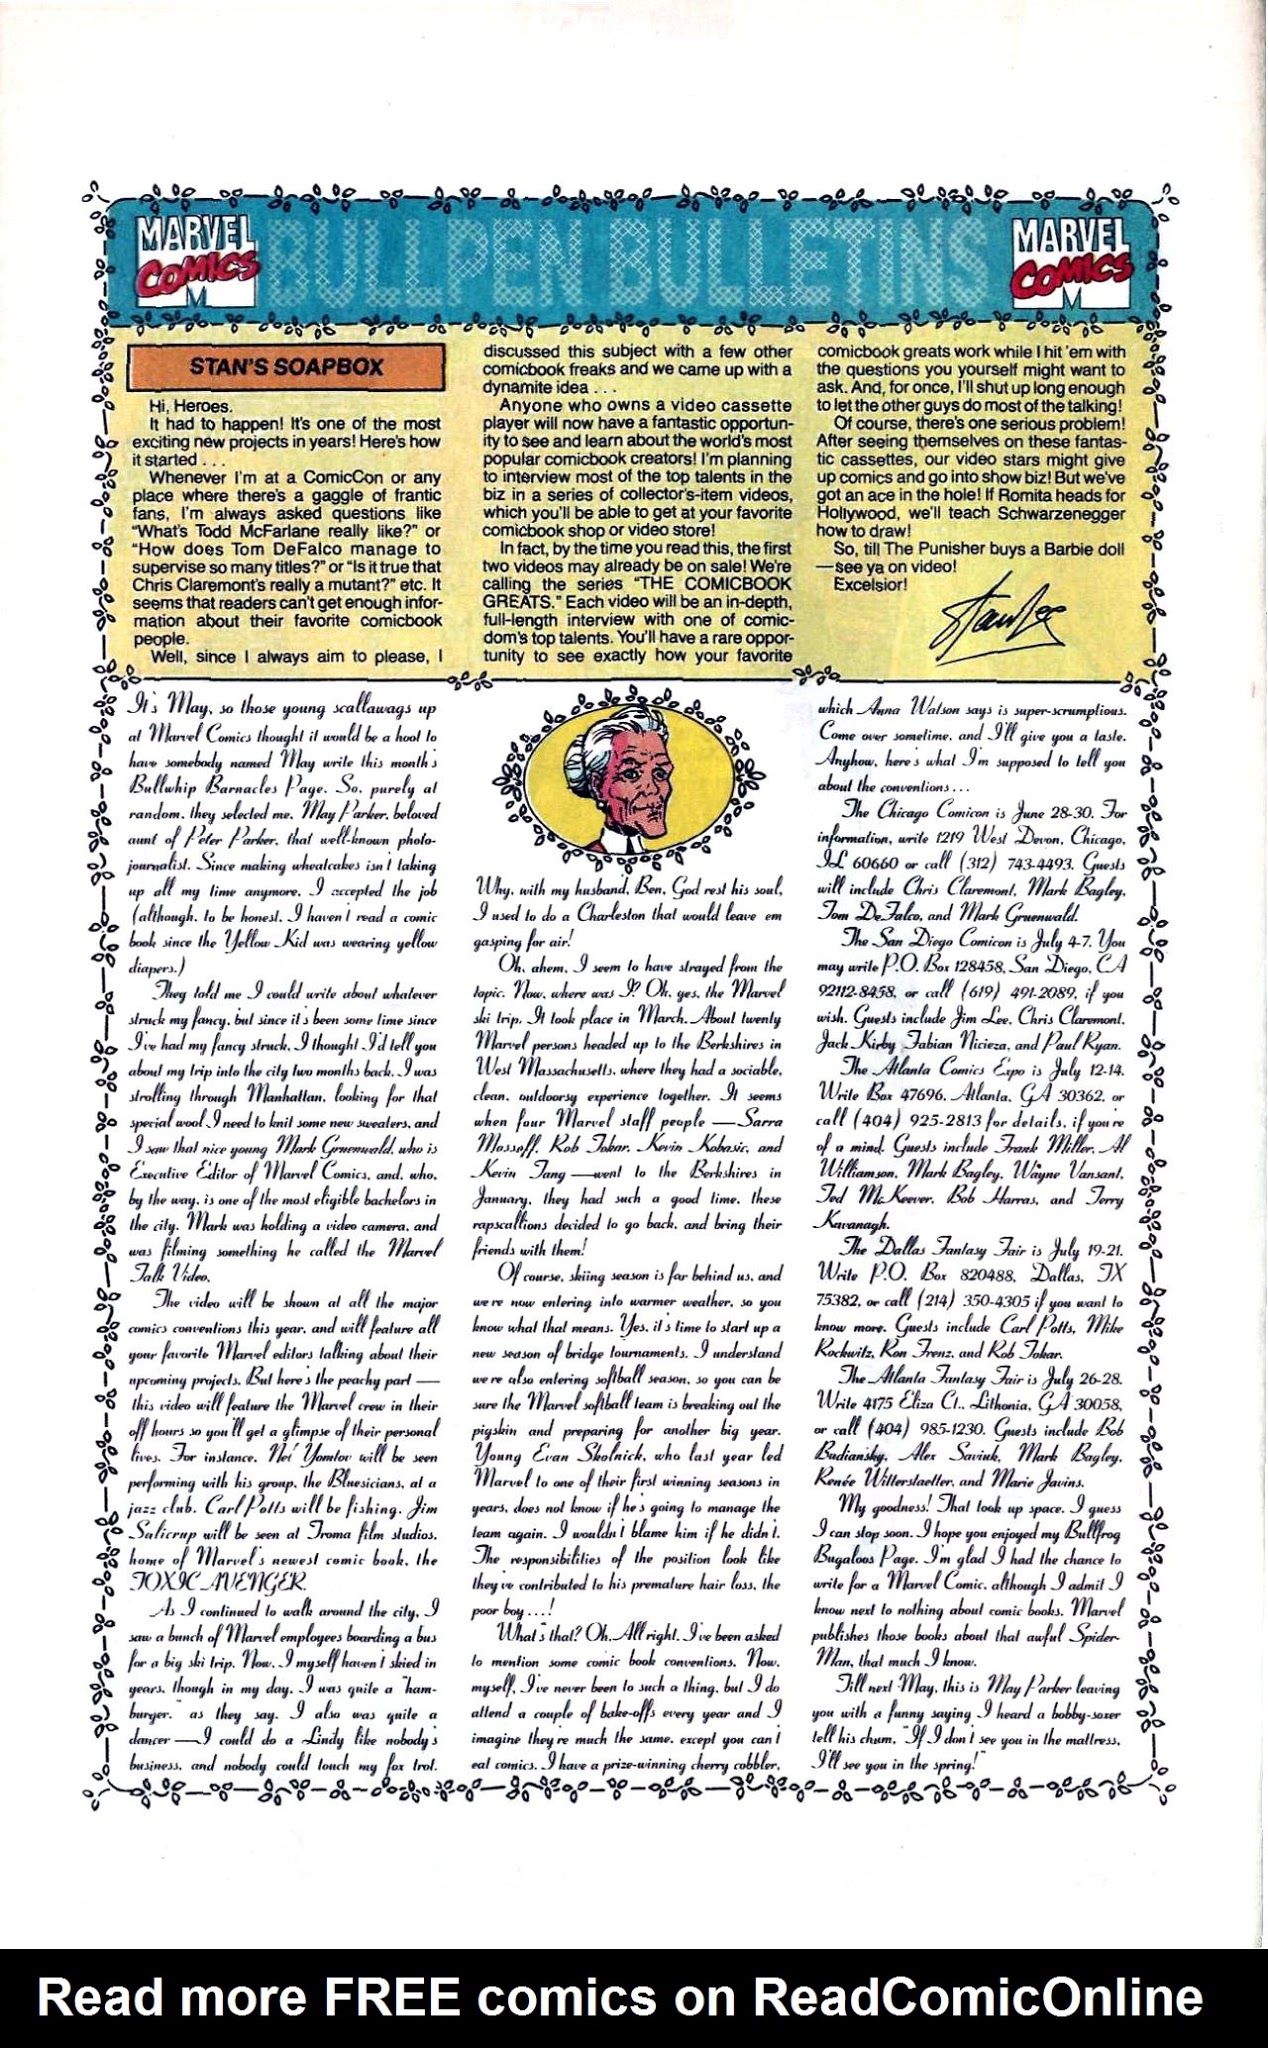 MARVEL COMICS M
BULLPEN BULLETINS
MARVEL COMICS M
STAN'S SOAPBOX
Hi, Heroes.
It had to happen! It's one of the most
exciting new projects in years! Here's how
it started . . .
Whenever I'm at a ComicCon or any
place where there's a gaggle of frantic
fans, I'm always asked questions like
"What's Todd McFarlane really like?" or
"How does Tom DeFalco manage to
supervise so many titles?" or "Is it true that
Chris Claremont's really a mutant?" etc. It
seems that readers can't get enough infor-
mation about their favorite comicbook
people.
Well, since I always aim to please, I
discussed this subject with a few other
comicbook freaks and we came up with a
dynamite idea . . .
Anyone who owns a video cassette
player will now have a fantastic opportun-
ity to see and learn about the world's most
popular comicbook creators! I'm planning
to interview most of the top talents in the
biz in a series of collector's-item videos,
which you'll be able to get at your favorite
comicbook shop or video store!
In fact, by the time you read this, the first
two videos may already be on sale! We're
calling the series "THE COMICBOOK
GREATS." Each video will be an in-depth,
full-length interview with one of comic-
dom's top talents. You'll have a rare oppor-
tunity to see exactly how your favorite
comicbook greats work while I hit 'em with
the questions you yourself might want to
ask. And, for once, I'll shut up long enough
to let the other guys do most of the talking!
Of course, there's one serious problem!
After seeing themselves on these fantas-
tic cassettes, our video stars might give
up comics and go into show biz! But we've
got an ace in the hole! If Romita heads for
Hollywood, we'll teach Schwarzenegger
how to draw!
So, till The Punisher buys a Barbie doll
—see ya on video!
Excelsior!
Stan Lee
It's May, so those young scallawags up
at Marvel Comics thought it would be a hoot to
have somebody named May write this month's
Bullwhip Barnacles Page. So, purely at
random, they selected me, May Parker, beloved
aunt of Peter Parker, that well-known photo-
journalist. Since making wheatcakes isn't taking
up all my time anymore, I accepted the job
(although, to be honest, I haven't read a comic
book since the Yellow Kid was wearing yellow
diapers.)
They told me I could write about whatever
struck my fancy, but since it's been some time since
I've had my fancy struck, I thought I'd tell you
about my trip into the city two months back. I was
strolling through Manhattan, looking for that
special wool I need to knit some new sweaters, and
I saw that nice young Mark Gruenwald, who is
Executive Editor of Marvel Comics, and, who,
by the way, is one of the most eligible bachelors in
the city. Mark was holding a video camera, and
was filming something he called the Marvel
Talk Video.
The video will be shown at all the major
comics conventions this year, and will feature all
your favorite Marvel editors talking about their
upcoming projects. But here's the peachy part —
this video will feature the Marvel crew in their
off hours so you'll get a glimpse of their personal
lives. For instance, Nel Yomtov will be seen
performing with his group, the Bluesicians, at a
jazz club. Carl Potts will be fishing. Jim
Salicrup will be seen at Troma film studios,
home of Marvel's newest comic book, the
TOXIC AVENGER.
As I continued to walk around the city, I
saw a bunch of Marvel employees boarding a bus
for a big ski trip. Now, I myself haven't skied in
years, though in my day, I was quite a "ham-
burger," as they say. I also was quite a
dancer —I could do a Lindy like nobody's
business, and nobody could touch my fox trot.
Why, with my husband, Ben, God rest his soul,
I used to do a Charleston that would leave em
gasping for air!
Oh, ahem, I seem to have strayed from the
topic. Now, where was I? Oh, yes, the Marvel
ski trip. It took place in March. About twenty
Marvel persons headed up to the Berkshires in
West Massachusetts, where they had a sociable,
clean, outdoorsy experience together. It seems
when four Marvel staff people —Sarra
Mossoff, Rob Tokar, Kevin Kobasic, and
Kevin Tang —went to the Berkshires in
January, they had such a good time, these
rapscallions decided to go back, and bring their
friends with them!
Of course, skiing season is far behind us, and
we're now entering into warmer weather, so you
know what that means. Yes, it's time to start up a
new season of bridge tournaments. I understand
we're also entering softball season, so you can be
sure the Marvel softball team is breaking out the
pigskin and preparing for another big year.
Young Evan Skolnick, who last year led
Marvel to one of their first winning seasons in
years, does not know if he's going to manage the
team again. I wouldn't blame him if he didn't.
The responsibilities of the position look like
they've contributed to his premature hair loss, the
poor boy . . . !
What's that? Oh. All right. I've been asked
to mention some comic book conventions. Now,
myself, I've never been to such a thing, but I do
attend a couple of bake-offs every year and I
imagine they're much the same, except you can't
eat comics. I have a prize-winning cherry cobbler,
which Anna Watson says is super-scrumptious.
Come over sometime, and I'll give you a taste.
Anyhow, here's what I'm supposed to tell you
about the conventions . . .
The Chicago Comicon is June 28-30. For
information, write 1219 West Devon, Chicago,
IL 60660 or call (312) 743-4493. Guests
will include Chris Claremont, Mark Bagley,
Tom DeFalco, and Mark Gruenwald.
The San Diego Comicon is July 4-7. You
may write P.O. Box 128458, San Diego, CA
92112-8458, or call (619) 491-2089, if you
wish. Guests include Jim Lee, Chris Claremont,
Jack Kirby Fabian Nicieza, and Paul Ryan.
The Atlanta Comics Expo is July 12-14.
Write Box 47696, Atlanta, GA 30362, or
call (404) 925-2813 for details, if you're
of a mind. Guests include Frank Miller, Al
Williamson, Mark Bagley, Wayne Vansant,
Ted McKeever, Bob Harras, and Terry
Kavanagh.
The Dallas Fantasy Fair is July 19-21.
Write P.O. Box 820488, Dallas, TX
75382, or call (214) 350-4305 if you want to
know more. Guests include Carl Potts, Mike
Rockwitz, Ron Frenz, and Rob Tokar.
The Atlanta Fantasy Fair is July 26-28.
Write 4175 Eliza Ct., Lithonia, GA 30058,
or call (404) 985-1230. Guests include Bob
Budiansky, Alex Saviuk, Mark Bagley,
Renée Witterstaetter, and Marie Javins.
My goodness! That took up space. I guess
I can stop soon. I hope you enjoyed my Bullfrog
Bugaloos Page. I'm glad I had the chance to
write for a Marvel Comic, although I admit I
know next to nothing about comic books. Marvel
publishes those books about that awful Spider-
Man, that much I know.
Till next May, this is May Parker leaving
you with a funny saying I heard a bobby-soxer
tell his chum, "If I don't see you in the mattress,
I'll see you in the spring!"
Read more FREE comics on ReadComicOnline